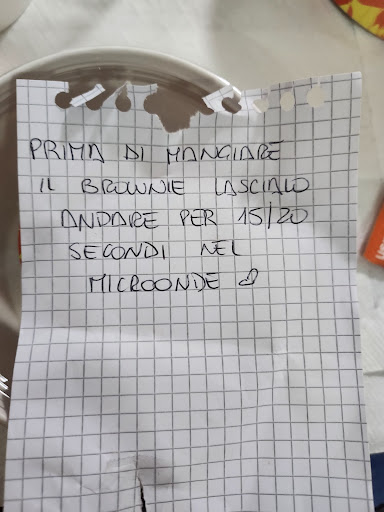 PRIMA DI MANGIARE
IL BROWNIE LASCIALO
ANDARE PER 15/20
SECONDI NEL
MICROONDE ♡